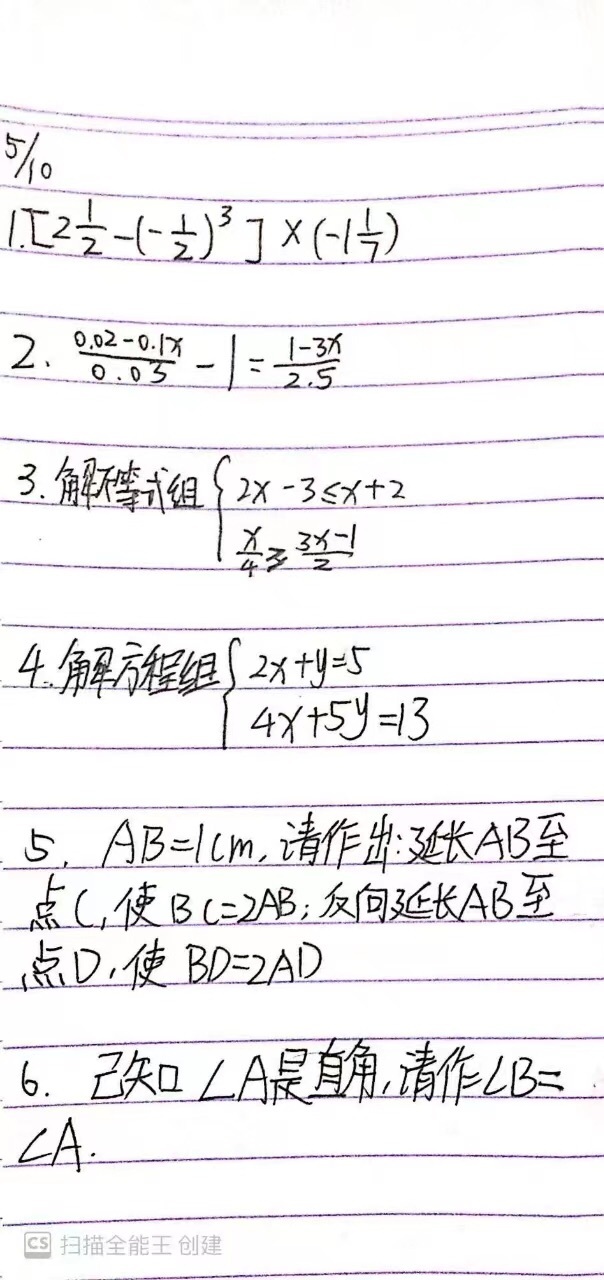 5/10
1.[2 1/2 -(- 1/2)³] ×(-1 1/7)
2. (0.02-0.1x)/0.03 - 1 = (1-3x)/2.5
3.解不等式组{2x-3≤x+2
x/4 ≥ (3x-1)/2
4.解方程组{2x+y=5
4x+5y=13
5. AB=1cm,请作出:延长AB至
点C,使BC=2AB;反向延长AB至
点D,使BD=2AD
6. 已知∠A是直角,请作∠B=
∠A.
CS 扫描全能王 创建